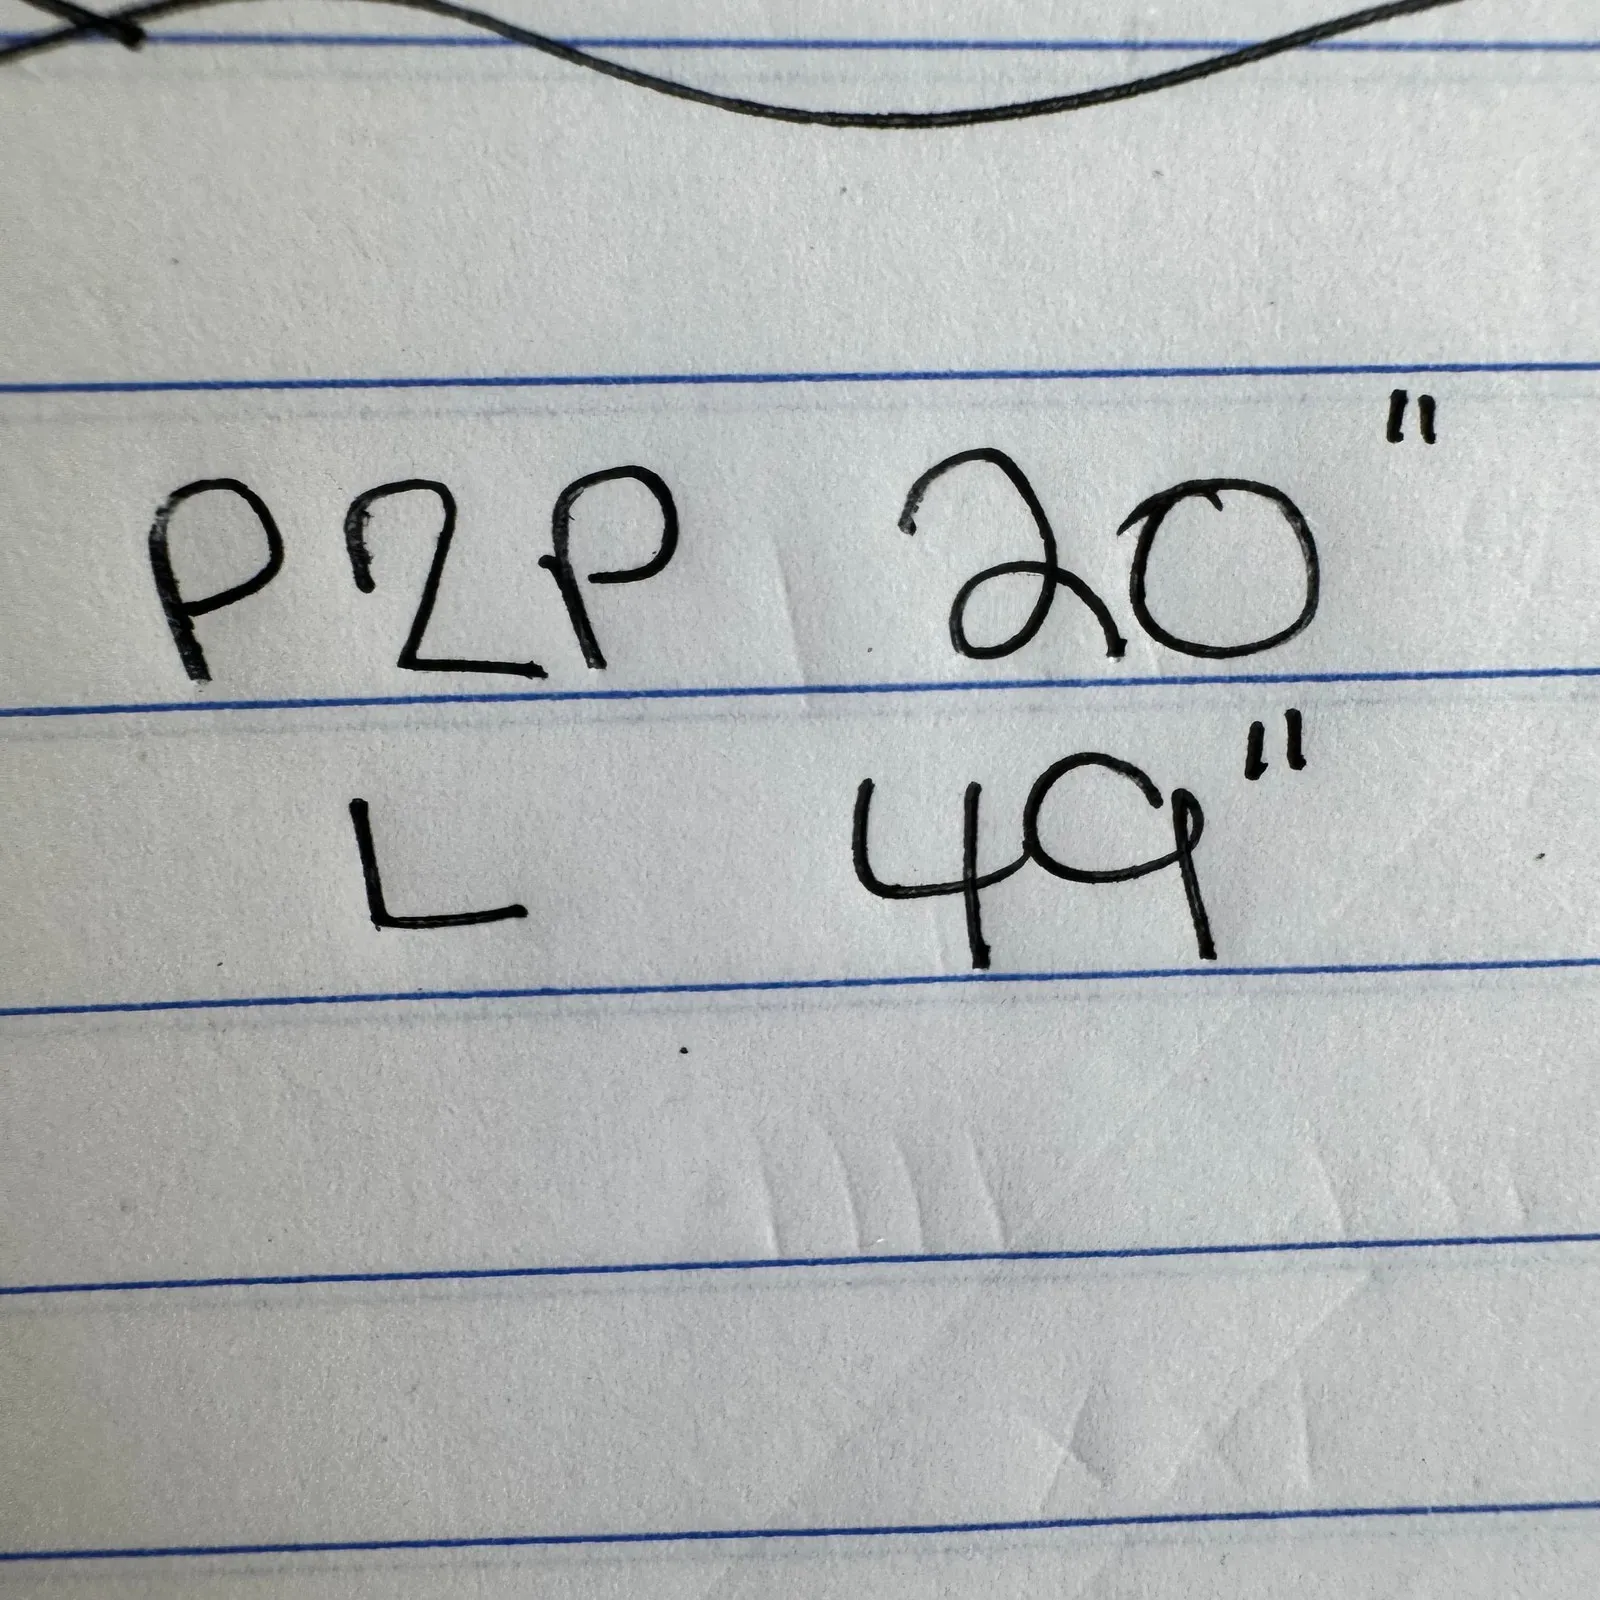 P2P 20"
L 49"